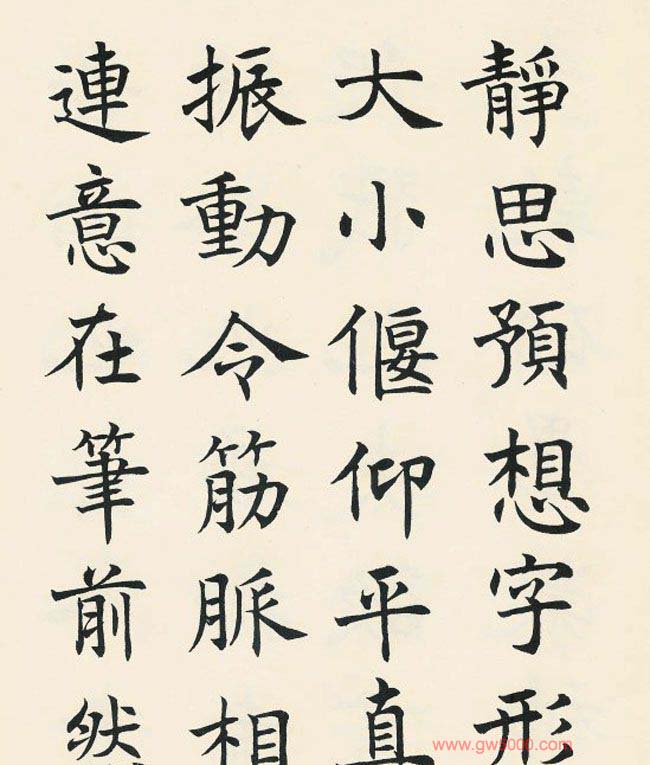 靜思預想字形
大小偃仰平真
振動令筋脈相
連意在筆前然
www.gw5000.com